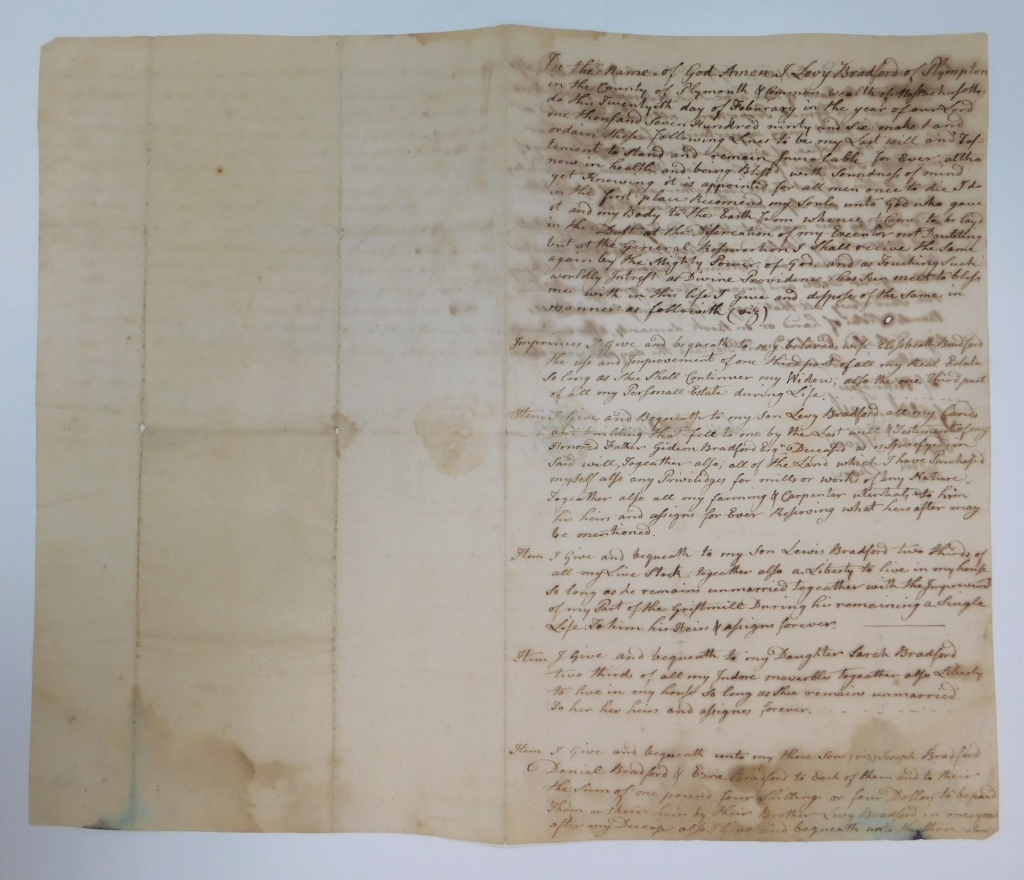 In the Name of God Amen I Levy Bradford of Plympton
in the County of Plymouth & Common wealth of
do this Twentyeth day of Feburary in the year of our Lord
one thousand Seven Hundred ninty and Six make and
ordain these following Lines to be my Last will and Tes-
tement to Stand and remain Inviolable for Ever altho
now in health and being Blest with Soundness of mind
yet Knowing it is appointed for all men once to die I do
in the first place Recomend my Soule unto God who gave
it and my Body to the Earth from whence it Came to be layd
in the Dust at the Discreation of my Executor not Doubting
but at the General Resurection I Shall recive the Same
again by the Mighty Power of God and as Touching Such
worldly Intrest as Divine Providence has Seen meet to bless
me with in this life I Give and dispose of the Same in
manner as followith (viz)
Imprimes I Give and bequeath to my beloved wife Elisebeath Bradford
the use and Improvement of one third part of all my Real Estate
So long as Shee Shall Continuer my Widow; also the one third part
of all my Personall Estate during Life.
Item I Give and Bequeath to my Son Levy Bradford all my
and building that fell to me by the Last will & Testament of my
Honored Father Gideon Bradford Esqr Deceased as is Specifyed in
Said will, Togeather also, all of the Land which I have Purchased
myself also any Privilidges for mills or works of any Nature
Togeather also all my farming & Carpenter utentials to him
his heirs and assigns for Ever Reserving what here after may
be mentioned.
Item I Give and bequeath to my Son Lewis Bradford two thirds of
all my Live Stock, togeather also a Liberty to live in my house
So long as he remains unmarried togeather with the Improvment
of my Part of the Gristmill During his remaining a Single
Life To him his Heirs & assigns forever.
Item I Give and bequeath to my Daughter Sarah Bradford
two thirds of all my Indore moverbles togeather also Liberty
to live in my house So long as Shee remains unmarried
To her her heirs and assignes forever.
Item I Give and bequeath unto my three Sons (viz) Joseph Bradford
Daniel Bradford & Ezra Bradford to Each of them and to their
the Sum of one pound four Shillings or four Dollors to be paid
Them or their heirs by their Brother Levy Bradford in one year
after my Decease also I Give and bequeath unto the three